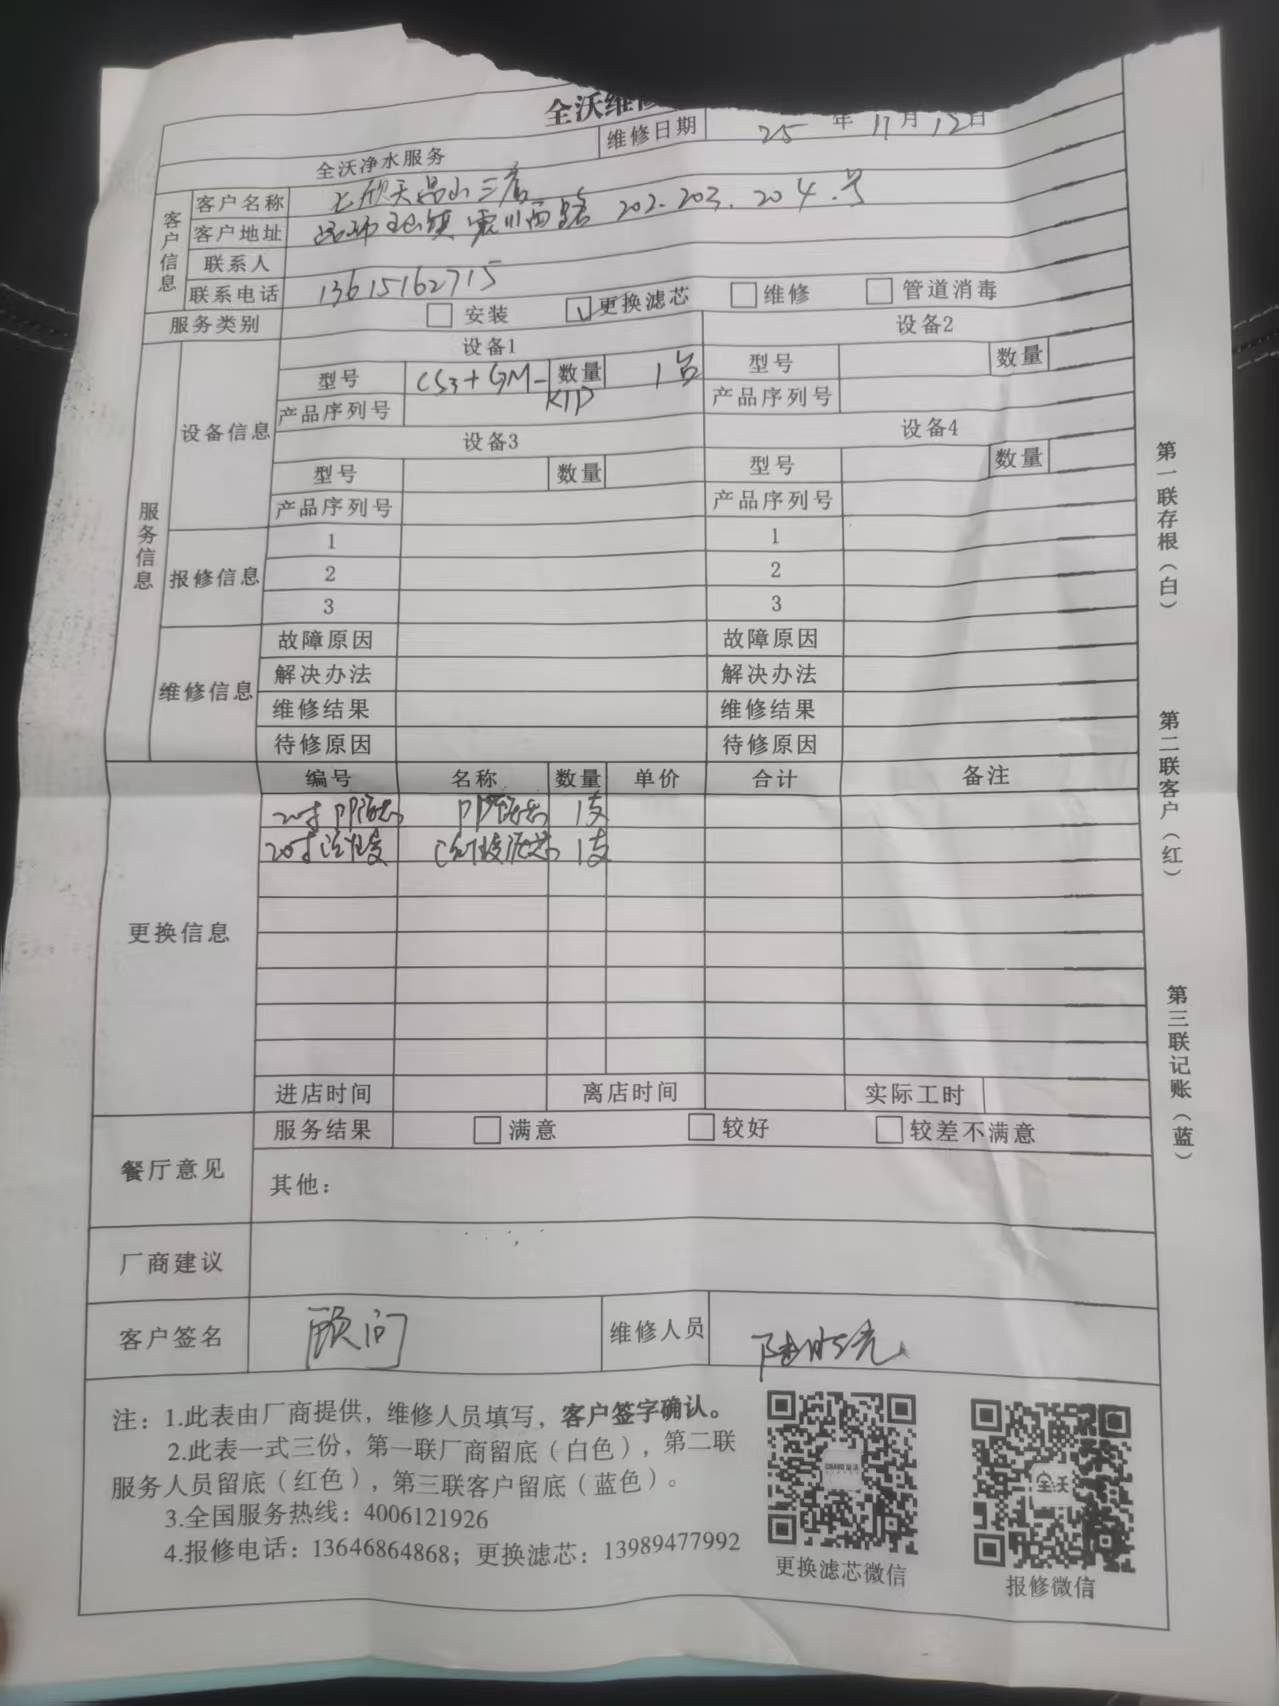 全沃维修
全沃净水服务 维修日期 25年11月12日
客户信息
客户名称 七欣天昆山三店
客户地址 玉山镇 西路 202.203.204.号
联系人
联系电话 13615162715
服务类别 安装 更换滤芯 维修 管道消毒
服务信息
设备信息
设备1 设备2
型号 CS3+GM-KTP 数量 1台 型号 数量
产品序列号 产品序列号
设备3 设备4
型号 数量 型号 数量
产品序列号 产品序列号
报修信息
1 1
2 2
3 3
维修信息
故障原因 故障原因
解决办法 解决办法
维修结果 维修结果
待修原因 待修原因
更换信息
编号 名称 数量 单价 合计 备注
20寸PP滤芯 PP滤芯 1支
20寸活性炭 活性炭滤芯 1支
进店时间 离店时间 实际工时
餐厅意见
服务结果 满意 较好 较差不满意
其他：
厂商建议
客户签名 顾问 维修人员
注：1.此表由厂商提供，维修人员填写，客户签字确认。
2.此表一式三份，第一联厂商留底（白色），第二联
服务人员留底（红色），第三联客户留底（蓝色）。
3.全国服务热线：4006121926
4.报修电话：13646864868；更换滤芯：13989477992
更换滤芯微信
全沃
报修微信
第一联存根（白）
第二联客户（红）
第三联记账（蓝）